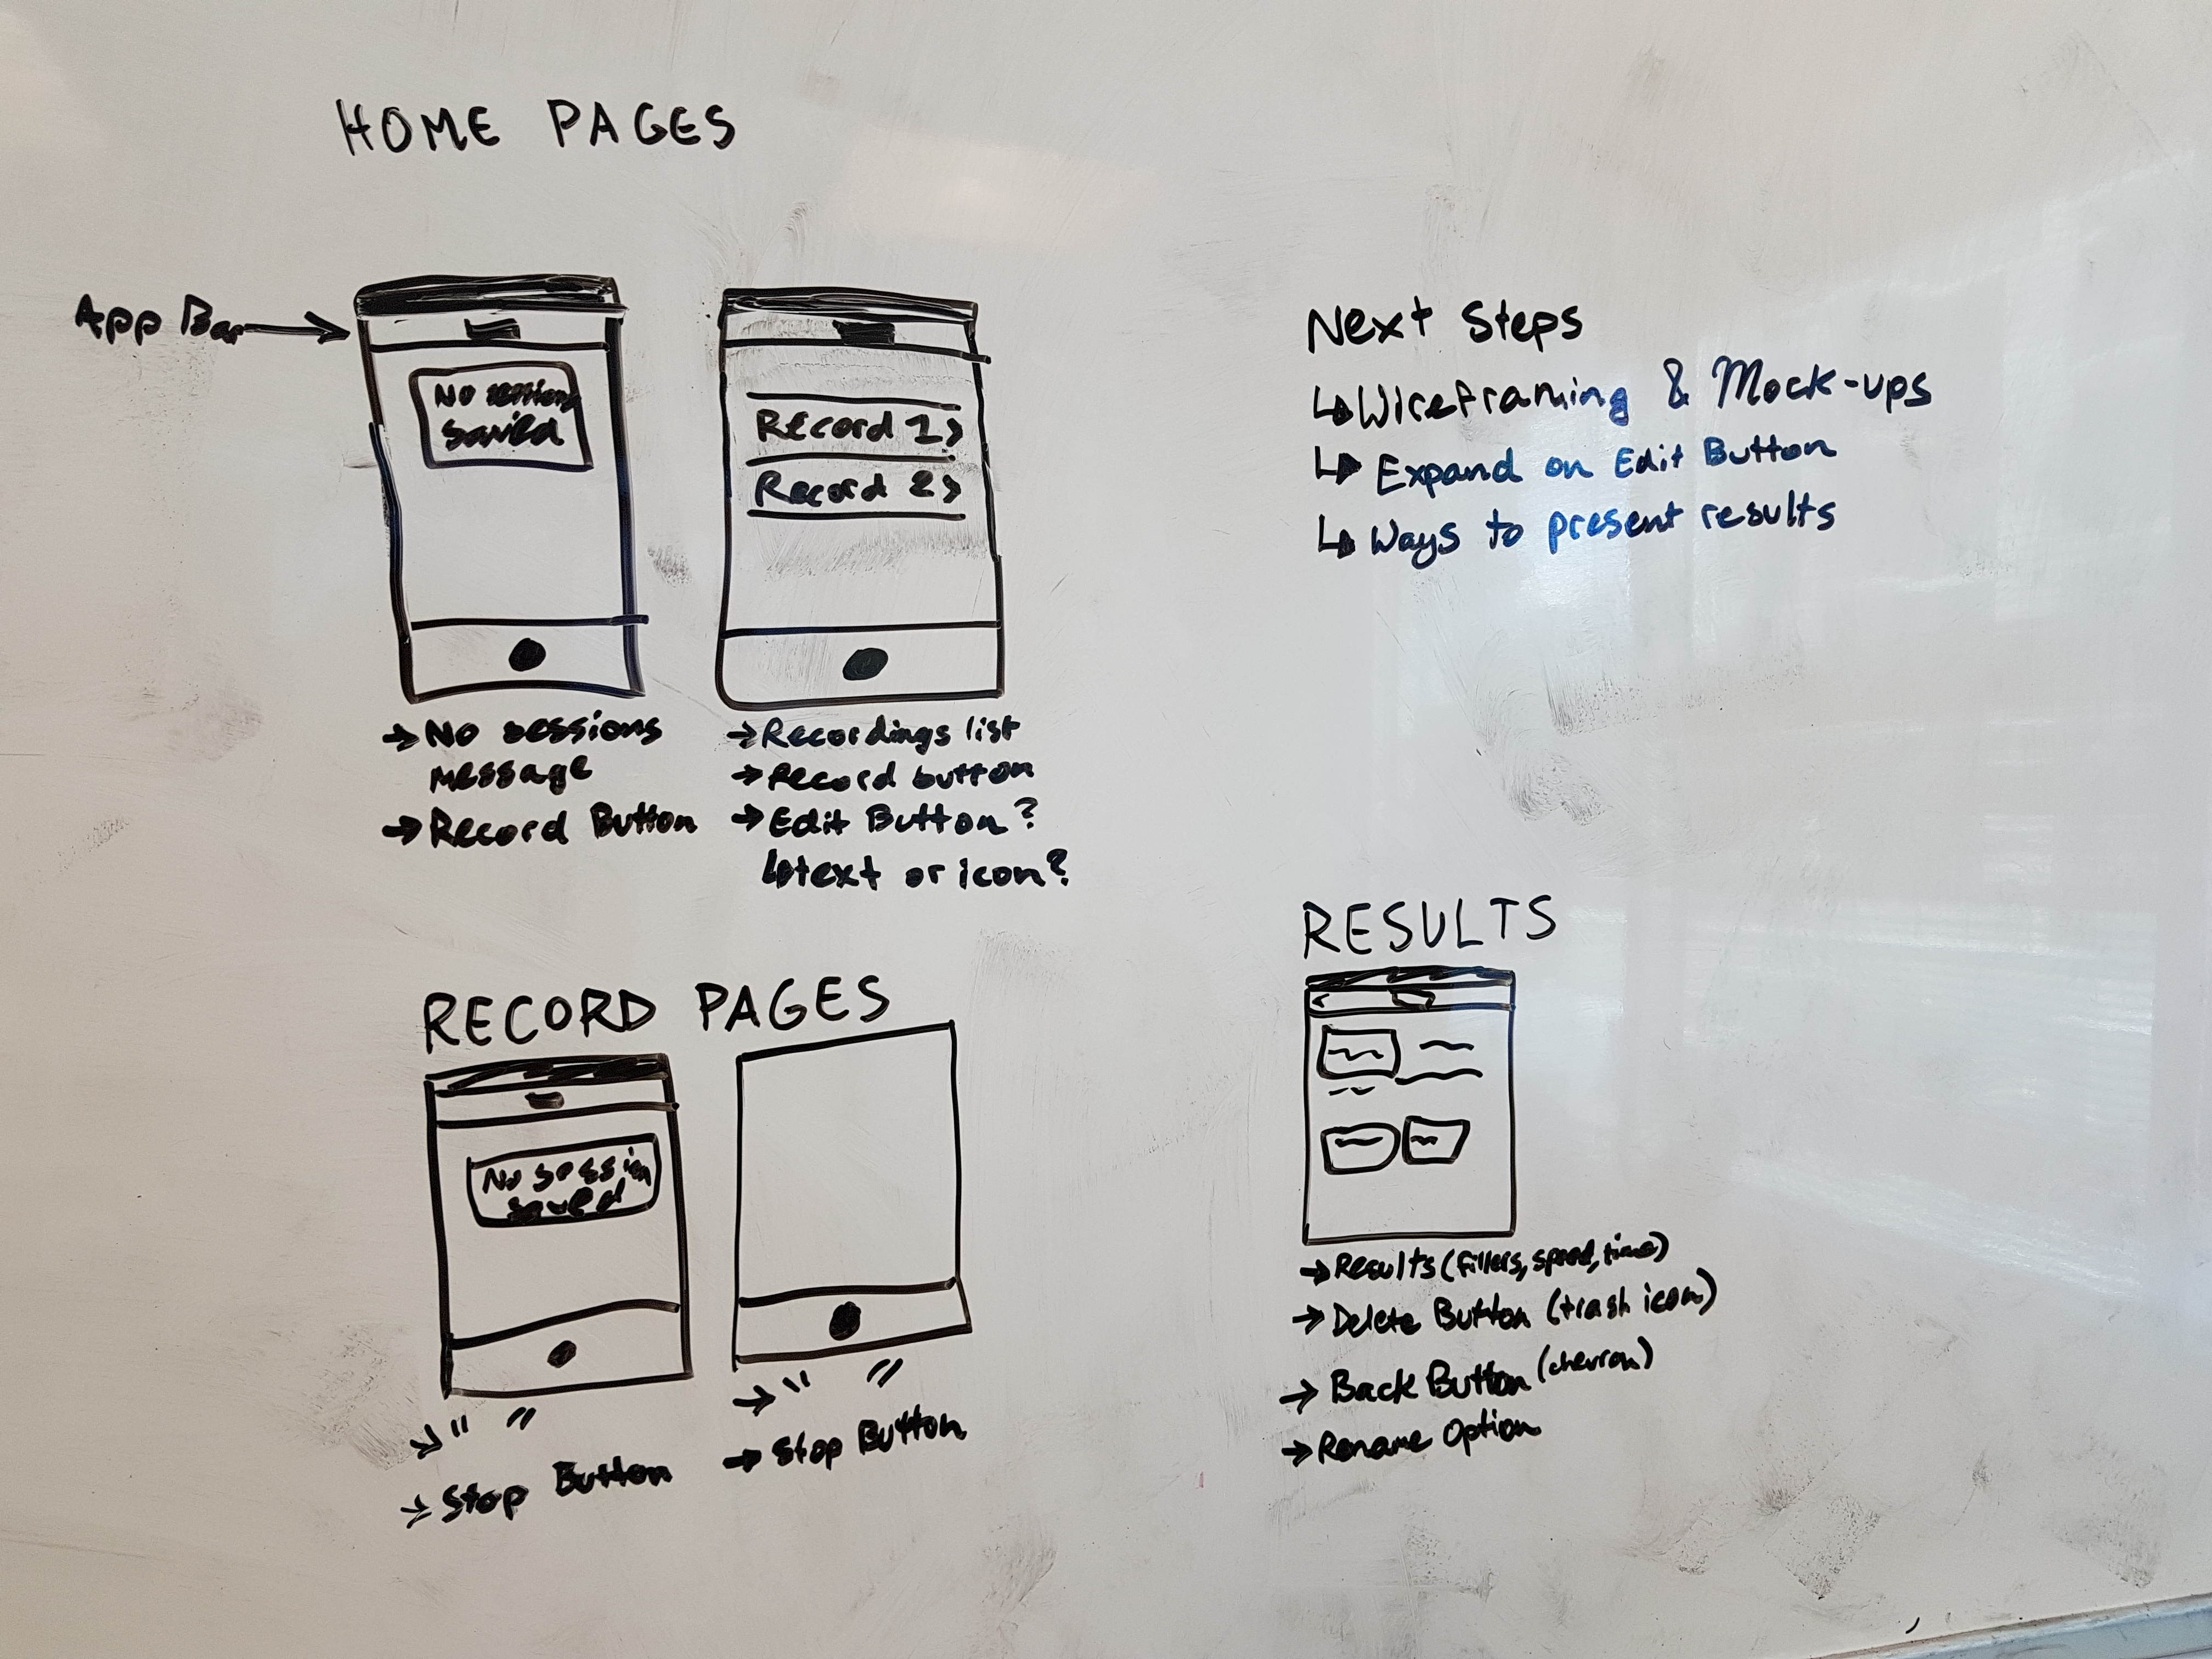 HOME PAGES
App Bar
No sessions
saved
Record 1 >
Record 2 >
→ No sessions
message
→ Record Button
→ Recordings list
→ Record button
→ Edit Button?
↳ text or icon?
Next Steps
↳ Wireframing & Mock-ups
↳ Expand on Edit Button
↳ Ways to present results
RECORD PAGES
No session
saved
→ " "
→ Stop Button
→ " "
→ Stop Button
RESULTS
<
→ Results (fillers, speed, time)
→ Delete Button (trash icon)
→ Back Button (chevron)
→ Rename Option